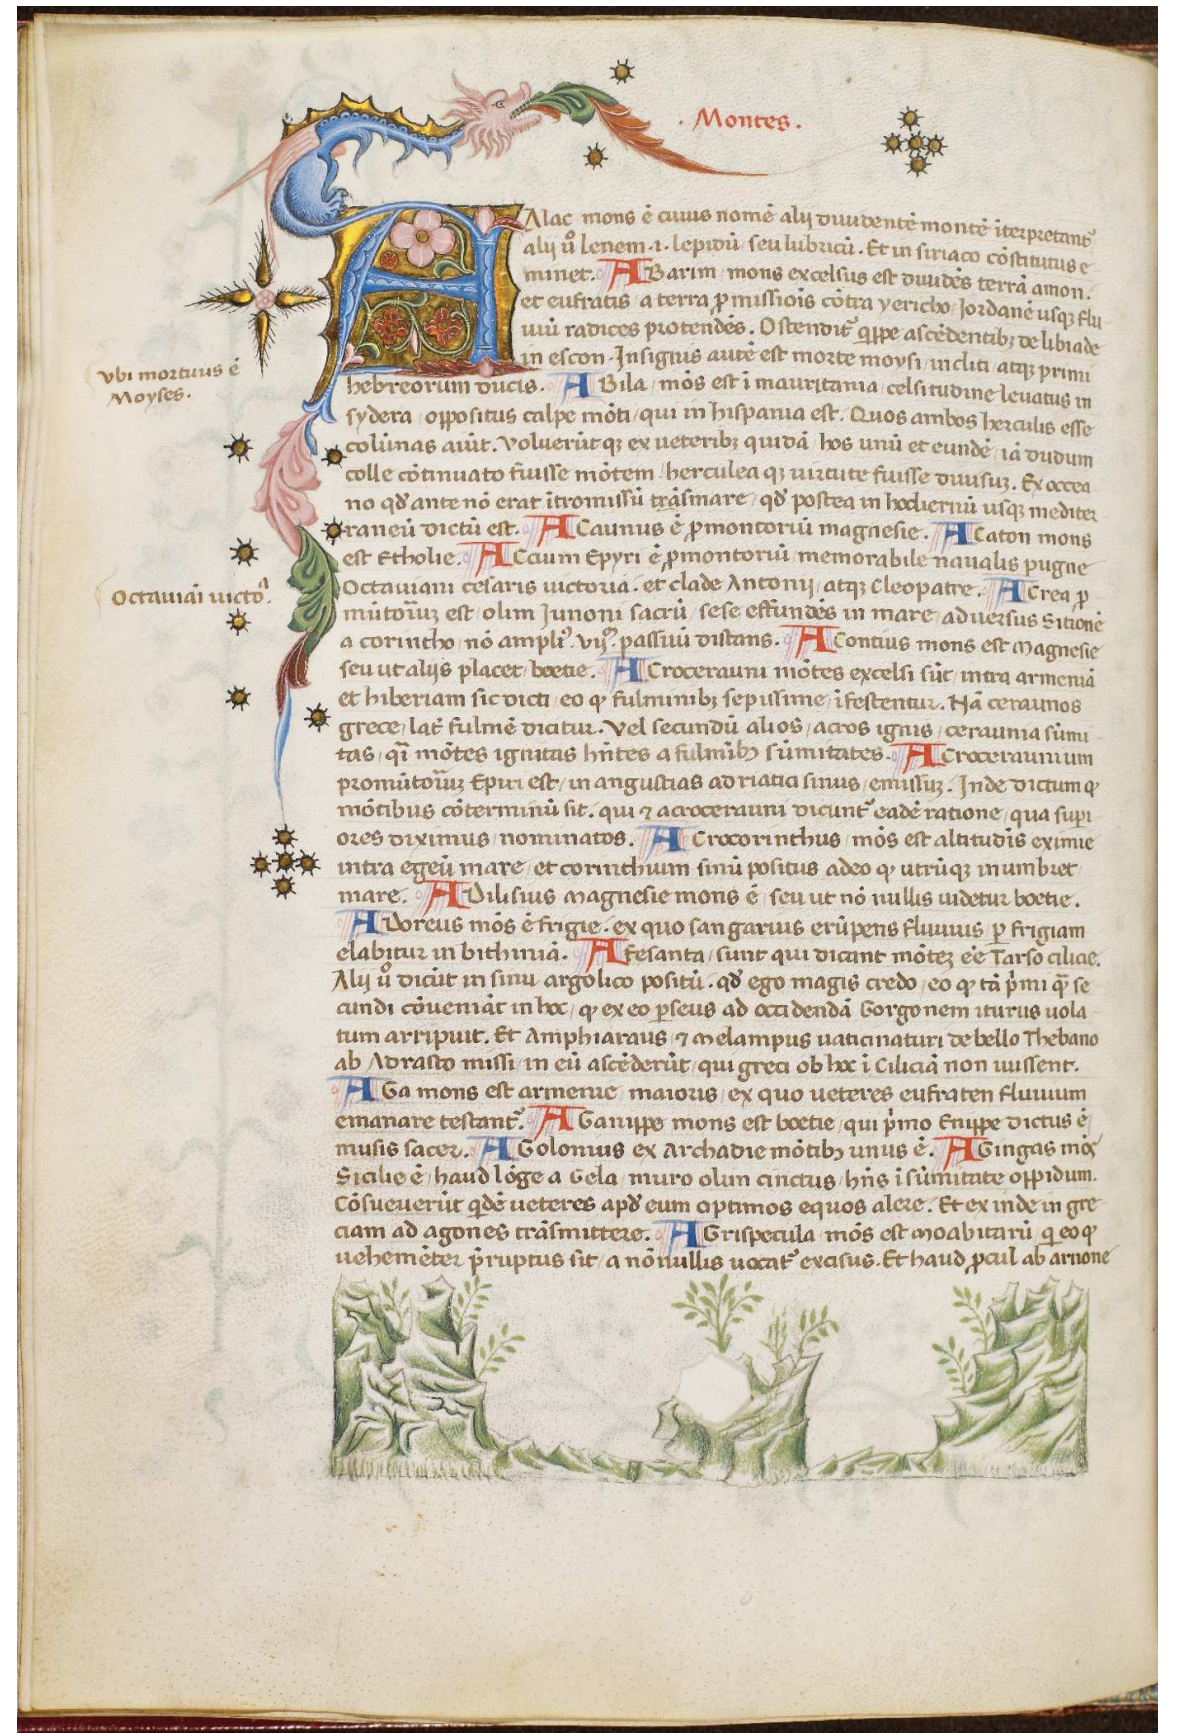 . Montes.
AAlac mons ē cuius nomē alij diuidentē montē īterpretant᷑
alij u͛o lenem .i. lepidū seu lubricū. Et in siriaco cōstitutus e-
minet. ABarim mons excelsus est diuidēs terrā amon.
et eufratis a terra ꝓmissiōis cōtra yericho Jordanē usqꝫ flu
uiū radices protendēs. Ostendit᷑ qͥppe ascēdentibꝫ de libiade
in escon. Insignis autē est morte moysi incliti atqꝫ primi
hebreorum ducis. ABila mōs est ī mauritania celsitudine leuatus in
sydera oppositus calpe mōti qui in hispania est. Quos ambos herculis esse
colūnas aiūt. Voluerūt qꝫ ex ueteribꝫ quidā hos unū et eundē iā dudum
colle cōtinuato fuisse mōtem herculea qꝫ uirtute fuisse diuisuꝫ. Ex occea
no qd̄ ante nō erat ītromissū trāsmare qd̄ postea in hodiernū usqꝫ mediter
raneū dictū est. ACaunus ē ꝓmontoriū magnesie. ACaton mons
est Etholie. ACcium Epyri ē ꝓmontoriū memorabile naualis pugne
Octauiani cesaris uictoria et clade Antonij atqꝫ Cleopatre. ACrea ꝓ
mūtoriuꝫ est olim Junoni sacrū sese effundēs in mare aduersus Sitionē
a corintho nō ampliꝰ. vijᵒ. passuū distans. AContius mons est Magnesie
seu ut alijs placet boetie. ACrocerauni mōtes excelsi sūt intra armeniā
et hiberiam sic dicti eo ꝙ fulminibꝫ sepissime īfestentur. Nā ceraunos
grece lat̄ fulmē dicitur. Vel secundū alios acros ignis ceraunia sūmi-
tas qͣi mōtes ignitas hn̄tes a fulmībꝫ sūmitates. ACroceraunium
promūtoriuꝫ Epiri est in angustias adriatici sinus emissuꝫ. Inde dictum ꝙ
mōtibus cōterminū sit. qui ⁊ acrocerauni dicunt᷑ eadē ratione qua supi
ores diximus nominatos. ACrocorinthus mōs est altitudīs eximie
intra egeū mare et corinthium sinū positus adeo ꝙ utrūqꝫ inumbret
mare. ADilisius Magnesie mons ē seu ut nō nullis uidetur boetie.
ADoreus mōs ē frigie. ex quo sangarius erūpens fluuius ꝑ frigiam
elabitur in bithiniā. AFesanta sunt qui dicant mōteꝫ eē Tarso cilicie.
Alij u͛o dicūt in sinu argolico positū. qd̄ ego magis credo eo ꝙ tā p̄mi qͣ̄ se
cundi cōueniāt in hoc ꝙ ex eo ꝑseus ad occidendā Gorgonem iturus uola-
tum arripuit. Et Amphiaraus ⁊ Melampus uaticinaturi de bello Thebano
ab Adrasto missi in eū ascēderūt qui greci ob hoc ī Ciliciā non iuissent.
AGa mons est armenie maioris ex quo ueteres eufraten fluuium
emanare testant᷑. AGanippe mons est boetie qui p̄mo Enippe dictus ē
musis sacer. AGolonius ex Archadie mōtibꝫ unus ē. AGingas mōs
Sicilie ē haud lōge a Gela muro olim cinctus hn̄s ī sūmitate oppidum.
Cōsueuerūt qͥdē ueteres apd̄ eum optimos equos alere. Et ex inde in gre-
ciam ad agones trāsmittere. AGrispecula mōs est Moabitarū q eo ꝙ
uehemēter p̄ruptus sit a nōnullis uocat᷑ excisus. Et haud ꝓcul ab arnone
vbi mortuus ē
Moyses.
Octauiāi uictoͥᵃ.